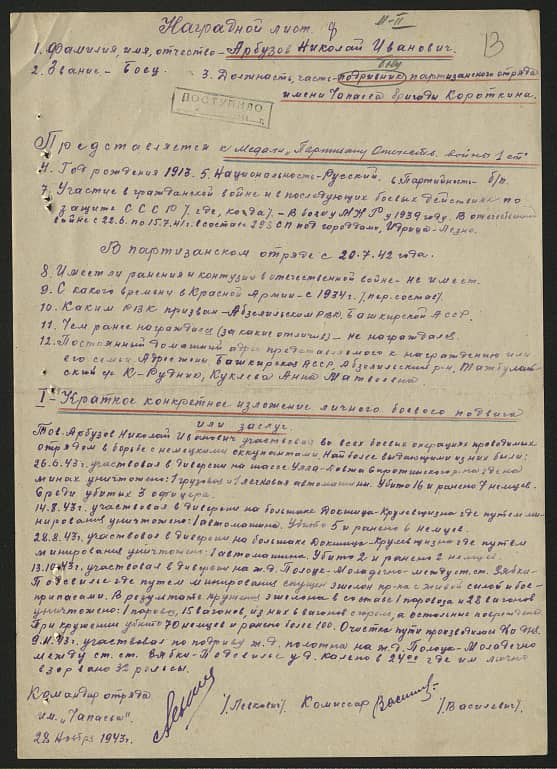 Наградной лист.
13
1. Фамилия, имя, отчество – Арбузов Николай Иванович.
2. Звание – Боец. 3. Должность, часть – подрывник партизанского отряда
имени Чапаева бригады Короткина.
ПОСТУПИЛО
Представляется к медали „Партизану Отечеств. войны 1 ст"
4. Год рождения 1913. 5. Национальность – Русский. 6. Партийность – б/п.
7. Участие в гражданской войне и в последующих боевых действиях по
защите СССР /где, когда/. – В боях у МНР в 1939 году. В отечественной
войне с 22.6. по 15.7.41 г. в составе 293 СП под городами, Идрица-
В партизанском отряде с 20.7.42 года.
8. Имеет ли ранения и контузии в отечественной войне – не имеет.
9. С какого времени в Красной Армии – с 1934 г. /пер. состав/.
10. Каким РВК призван – Абзелиловским РВК, Башкирской АССР.
11. Чем ранее награждался (за какие отличия) – не награждался.
12. Постоянный домашний адрес представляемого к награждению или
его семьи. Адрес жены Башкирская АССР, Абзелиловский р-н,
К-Рудник, Куклева Анна Матвеевна
I – Краткое конкретное изложение личного боевого подвига
или заслуг.
Тов. Арбузов Николай Иванович участвовал во всех боевых операциях проводимых
отрядом в борьбе с немецкими оккупантами. Наиболее выдающими из них были:
26.6.43 г. участвовал в диверсии на шоссе Улла- где на
минах уничтожено: 1 грузовая и 1 легковая автомашины. Убито 16 и ранено 7 немцев.
Среди убитых 3 офицера.
14.8.43 г. участвовал в диверсии на большаке Докшица-Крулевщизна где путем ми-
нирования уничтожено: 1 автомашина. Убито 5 и ранено 6 немцев.
28.8.43 г. участвовал в диверсии на большаке Докшица-Крулевщизна где путем
минирования уничтожено: 1 автомашина. Убито 2 и ранено 2 немцев.
13.10.43 г. участвовал в диверсии на ж.д. Полоцк-Молодечно между ст.ст. Зябки-
Подсвилье где путем минирования спущен эшелон пр-ка с живой силой и бое-
припасами. В результате крушения эшелона в составе 1 паровоза и 28 вагонов
уничтожено: 1 паровоз, 15 вагонов, из них 6 вагонов сгорело, а остальные повреждены.
При крушении убито 70 немцев и ранено более 100. Очистка пути производилась
9.11.43 г. участвовал по подрыву ж.д. полотна на ж.д. Полоцк-Молодечно
между ст.ст. Зябки-Подсвилье в 24⁰⁰ где им лично
взорвано 32 рельсы.
Командир отряда
им. „Чапаева" /Левкович/. Комиссар /Василевич/.
28 Ноября 1943 г.